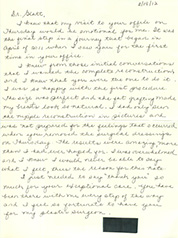 2/19/12
Dr. Scott
I knew that my visit to your office on
Thursday would be emotional for me. It was
the final step in a journey that began in
April of 2011 when I saw you for the first
time in your office.
I knew from those initial conversations
that I wanted the complete reconstruction
and I knew that you were the one to do it.
I was so happy with the first procedure.
The scars were perfect and the
breasts looked so natural. I had only seen
the nipple reconstruction in pictures and
was not prepared for the feelings that occurred
when you removed the surgical dressings
on Thursday. The results were amazing, more
than I had ever hoped for. I was overwhelmed
and I knew I would never be able to say
what I felt, hence the reason for this note.
I just needed to say "thank you" so
much for your exceptional care. You have
been there with me every step of the way
and I feel so fortunate to have you
for my plastic surgeon.